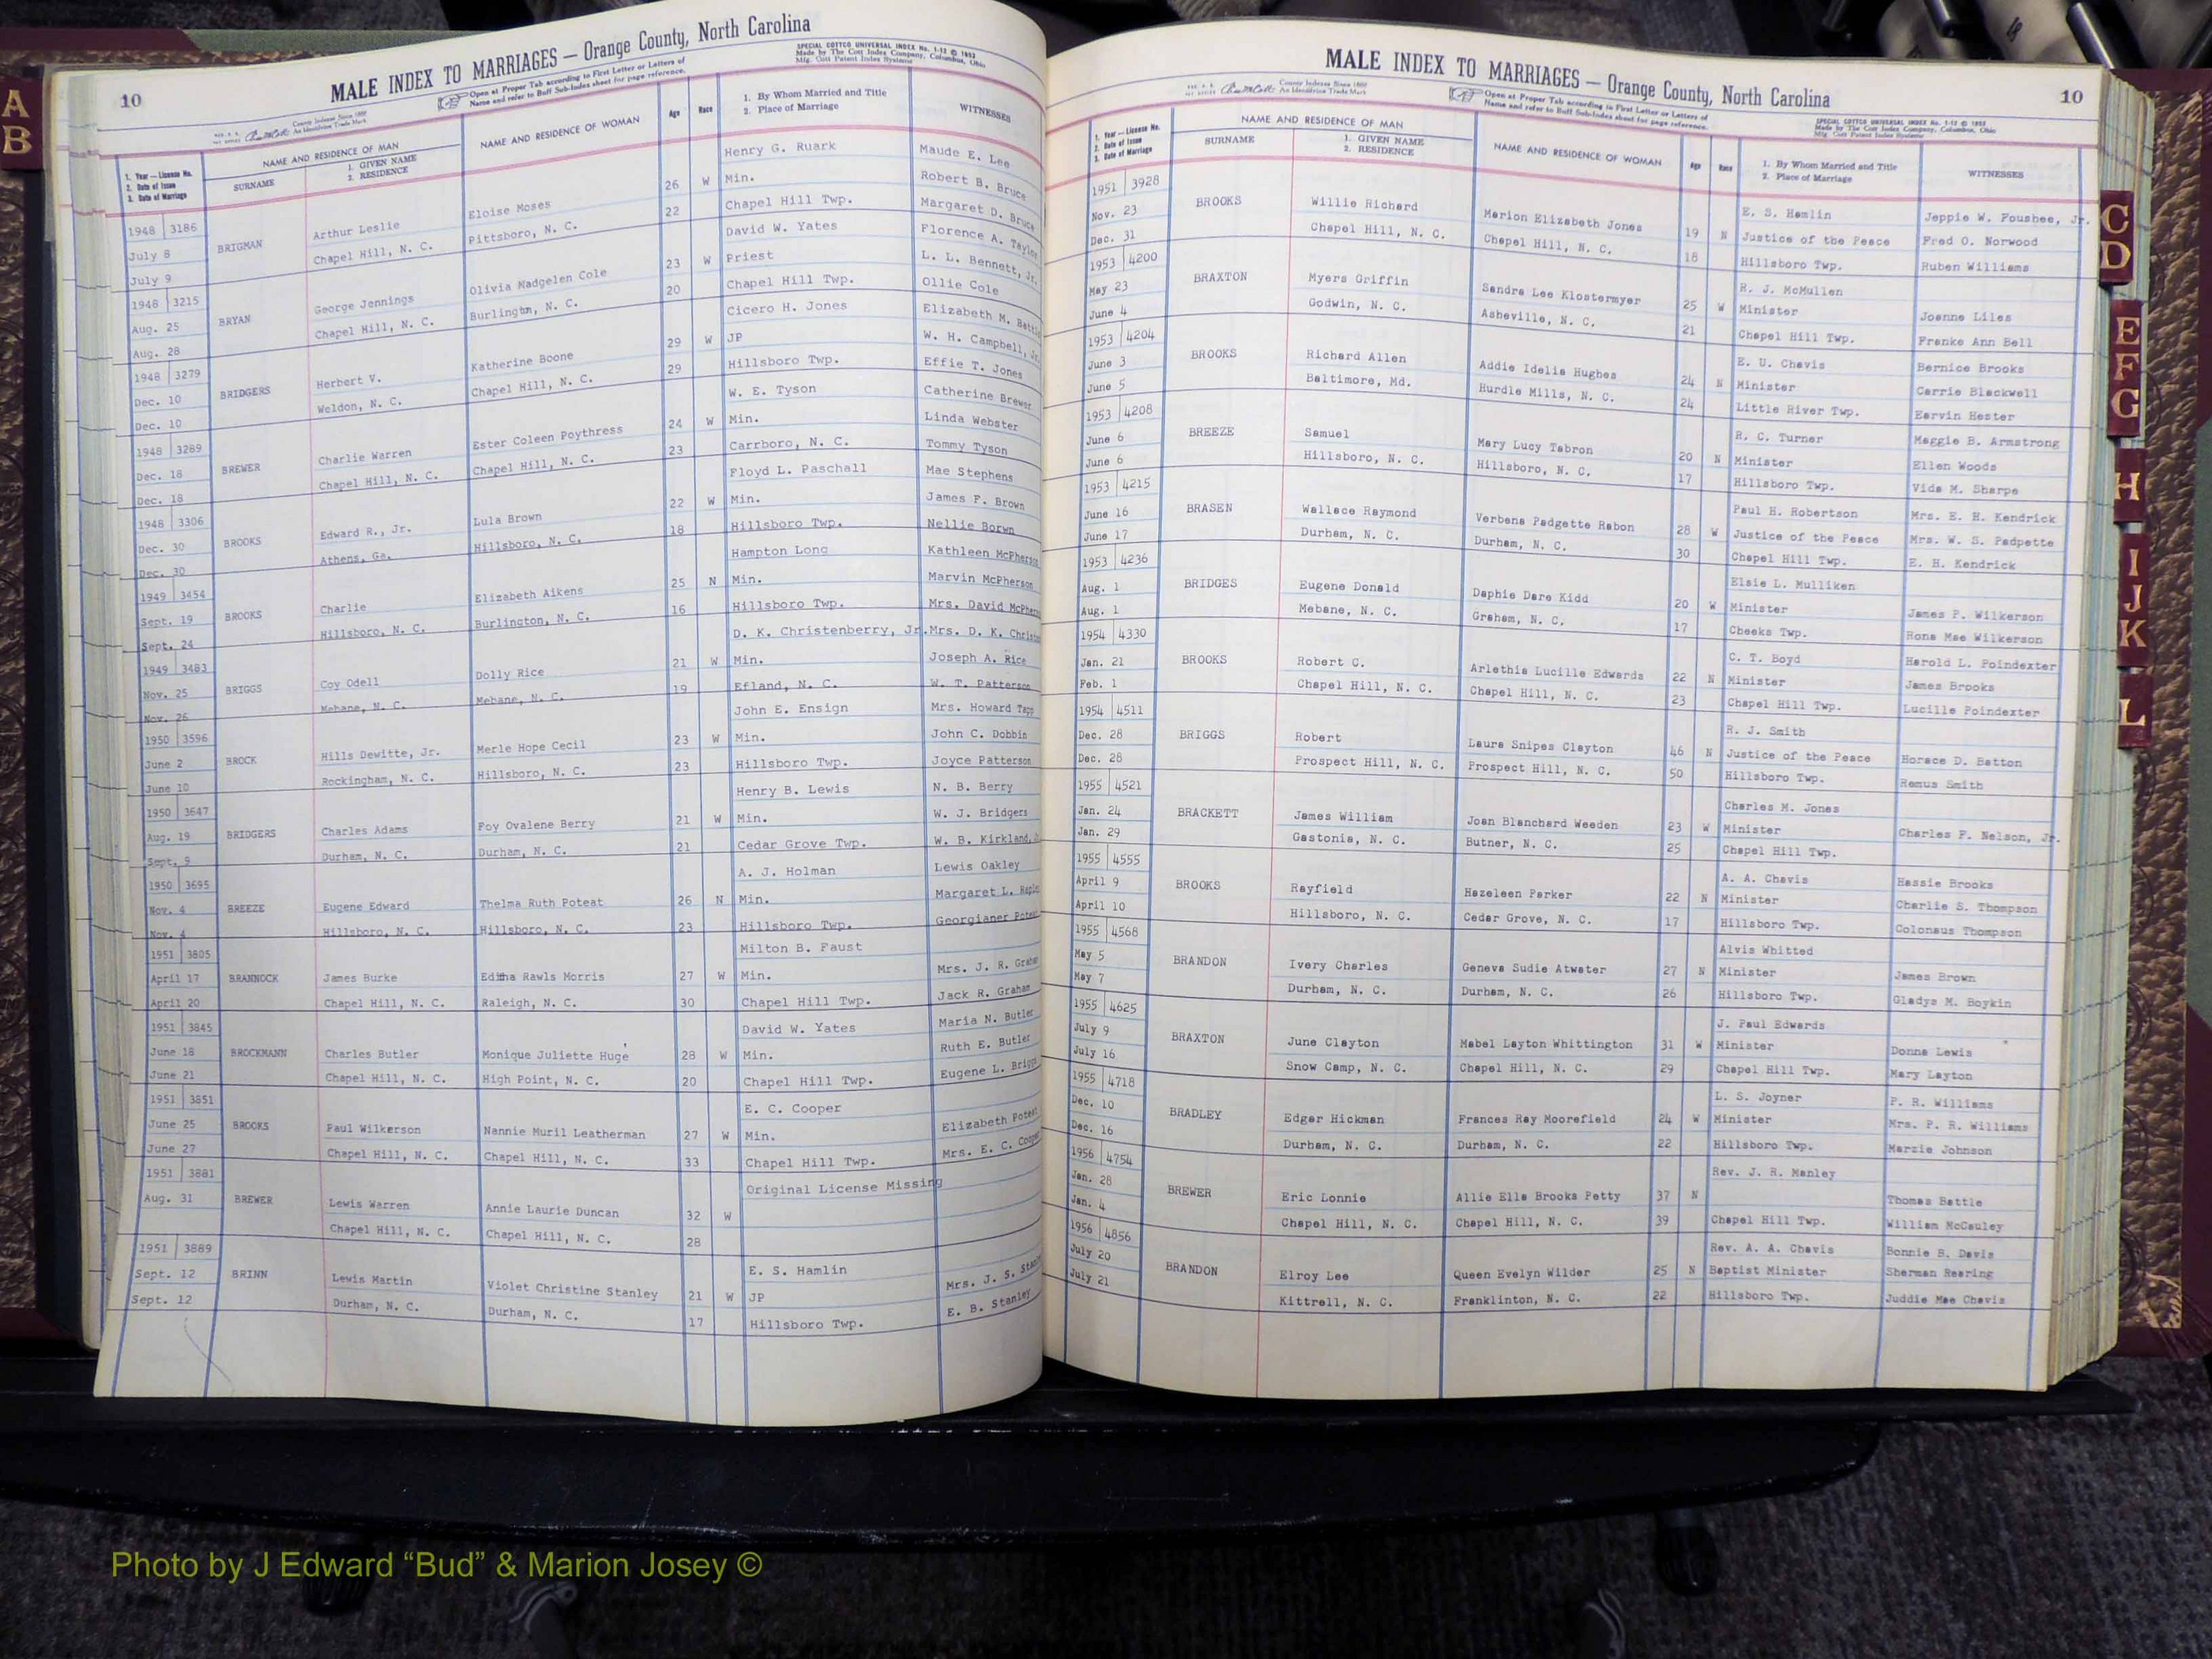 10
MALE INDEX TO MARRIAGES — Orange County, North Carolina
SPECIAL COTTCO UNIVERSAL INDEX No. 1-12 © 1953
Made by The Cott Index Company, Columbus, Ohio
Mfg. Cott Patent Index Systems
County Indexes Since 1888
An Identifying Trade Mark
Open at Proper Tab according to First Letter or Letters of
Name and refer to Buff Sub-Index sheet for page reference.
1. Year — License No.
2. Date of Issue
3. Date of Marriage
NAME AND RESIDENCE OF MAN
SURNAME
1. GIVEN NAME
2. RESIDENCE
NAME AND RESIDENCE OF WOMAN
Age
Race
1. By Whom Married and Title
2. Place of Marriage
WITNESSES
1948 3186 Henry G. Ruark Maude E. Lee
July 8 BRIGMAN Arthur Leslie Eloise Moses 26 W Min. Robert B. Bruce
July 9 Chapel Hill, N. C. Pittsboro, N. C. 22 Chapel Hill Twp. Margaret D. Bruce
1948 3215 David W. Yates Florence A. Taylor
Aug. 25 BRYAN George Jennings Olivia Madgelen Cole 23 W Priest L. L. Bennett, Jr.
Aug. 28 Chapel Hill, N. C. Burlington, N. C. 20 Chapel Hill Twp. Ollie Cole
1948 3279 Cicero H. Jones Elizabeth M.
Dec. 10 BRIDGERS Herbert V. Katherine Boone 29 W JP W. H. Campbell, Jr.
Dec. 10 Weldon, N. C. Chapel Hill, N. C. 29 Hillsboro Twp. Effie T. Jones
1948 3289 W. E. Tyson Catherine Brewer
Dec. 18 BREWER Charlie Warren Ester Coleen Poythress 24 W Min. Linda Webster
Dec. 18 Chapel Hill, N. C. Chapel Hill, N. C. 23 Carrboro, N. C. Tommy Tyson
1948 3306 Floyd L. Paschall Mae Stephens
Dec. 30 BROOKS Edward R., Jr. Lula Brown 22 W Min. James F. Brown
Dec. 30 Athens, Ga. Hillsboro, N. C. 18 Hillsboro Twp. Nellie Borwn
1949 3454 Hampton Long Kathleen McPherson
Sept. 19 BROOKS Charlie Elizabeth Aikens 25 N Min. Marvin McPherson
Sept. 24 Hillsboro, N. C. Burlington, N. C. 16 Hillsboro Twp. Mrs. David
1949 3483 D. K. Christenberry, Jr. Mrs. D. K.
Nov. 25 BRIGGS Coy Odell Dolly Rice 21 W Min. Joseph A. Rice
Nov. 26 Mebane, N. C. Mebane, N. C. 19 Efland, N. C. W. T. Patterson
1950 3596 John E. Ensign Mrs. Howard Tapp
June 2 BROCK Hills Dewitte, Jr. Merle Hope Cecil 23 W Min. John C. Dobbin
June 10 Rockingham, N. C. Hillsboro, N. C. 23 Hillsboro Twp. Joyce Patterson
1950 3647 Henry B. Lewis N. B. Berry
Aug. 19 BRIDGERS Charles Adams Foy Ovalene Berry 21 W Min. W. J. Bridgers
Sept. 9 Durham, N. C. Durham, N. C. 21 Cedar Grove Twp. W. B. Kirkland,
1950 3695 A. J. Holman Lewis Oakley
Nov. 4 BREEZE Eugene Edward Thelma Ruth Poteat 26 N Min. Margaret L.
Nov. 4 Hillsboro, N. C. Hillsboro, N. C. 23 Hillsboro Twp. Georgianer
1951 3805 Milton B. Faust
April 17 BRANNOCK James Burke Editha Rawls Morris 27 W Min. Mrs. J. R. Graham
April 20 Chapel Hill, N. C. Raleigh, N. C. 30 Chapel Hill Twp. Jack R. Graham
1951 3845 David W. Yates Maria N. Butler
June 18 BROCKMANN Charles Butler Monique Juliette Huge' 28 W Min. Ruth E. Butler
June 21 Chapel Hill, N. C. High Point, N. C. 20 Chapel Hill Twp. Eugene L. Briggs
1951 3851 E. C. Cooper
June 25 BROOKS Paul Wilkerson Nannie Muril Leatherman 27 W Min. Elizabeth Poteat
June 27 Chapel Hill, N. C. Chapel Hill, N. C. 33 Chapel Hill Twp. Mrs. E. C. Cooper
1951 3881 Original License Missing
Aug. 31 BREWER Lewis Warren Annie Laurie Duncan 32 W
Chapel Hill, N. C. Chapel Hill, N. C. 28
1951 3889 E. S. Hamlin
Sept. 12 BRINN Lewis Martin Violet Christine Stanley 21 W JP Mrs. J. S. Stanley
Sept. 12 Durham, N. C. Durham, N. C. 17 Hillsboro Twp. E. B. Stanley
MALE INDEX TO MARRIAGES — Orange County, North Carolina
10
County Indexes Since 1888
An Identifying Trade Mark
Open at Proper Tab according to First Letter or Letters of
Name and refer to Buff Sub-Index sheet for page reference.
SPECIAL COTTCO UNIVERSAL INDEX No. 1-12 © 1953
Made by The Cott Index Company, Columbus, Ohio
Mfg. Cott Patent Index Systems
1. Year — License No.
2. Date of Issue
3. Date of Marriage
NAME AND RESIDENCE OF MAN
SURNAME
1. GIVEN NAME
2. RESIDENCE
NAME AND RESIDENCE OF WOMAN
Age
Race
1. By Whom Married and Title
2. Place of Marriage
WITNESSES
1951 3928 E. S. Hamlin Jeppie W. Foushee, Jr.
Nov. 23 BROOKS Willie Richard Marion Elizabeth Jones 19 N Justice of the Peace Fred O. Norwood
Dec. 31 Chapel Hill, N. C. Chapel Hill, N. C. 18 Hillsboro Twp. Ruben Williams
1953 4200 R. J. McMullen
May 23 BRAXTON Myers Griffin Sandra Lee Klostermyer 25 W Minister Joanne Liles
June 4 Godwin, N. C. Asheville, N. C. 21 Chapel Hill Twp. Franke Ann Bell
1953 4204 E. U. Chavis Bernice Brooks
June 3 BROOKS Richard Allen Addie Idelia Hughes 24 N Minister Carrie Blackwell
June 5 Baltimore, Md. Hurdle Mills, N. C. 24 Little River Twp. Earvin Hester
1953 4208 R. C. Turner Maggie B. Armstrong
June 6 BREEZE Samuel Mary Lucy Tabron 20 N Minister Ellen Woods
June 6 Hillsboro, N. C. Hillsboro, N. C. 17 Hillsboro Twp. Vida M. Sharpe
1953 4215 Paul H. Robertson Mrs. E. H. Kendrick
June 16 BRASEN Wallace Raymond Verbena Padgette Rabon 28 W Justice of the Peace Mrs. W. S. Padpette
June 17 Durham, N. C. Durham, N. C. 30 Chapel Hill Twp. E. H. Kendrick
1953 4236 Elsie L. Mulliken
Aug. 1 BRIDGES Eugene Donald Daphie Dare Kidd 20 W Minister James P. Wilkerson
Aug. 1 Mebane, N. C. Graham, N. C. 17 Cheeks Twp. Rona Mae Wilkerson
1954 4330 C. T. Boyd Harold L. Poindexter
Jan. 21 BROOKS Robert C. Arlethia Lucille Edwards 22 N Minister James Brooks
Feb. 1 Chapel Hill, N. C. Chapel Hill, N. C. 23 Chapel Hill Twp. Lucille Poindexter
1954 4511 R. J. Smith
Dec. 28 BRIGGS Robert Laura Snipes Clayton 46 N Justice of the Peace Horace D. Batton
Dec. 28 Prospect Hill, N. C. Prospect Hill, N. C. 50 Hillsboro Twp. Remus Smith
1955 4521 Charles M. Jones
Jan. 24 BRACKETT James William Joan Blanchard Weeden 23 W Minister Charles F. Nelson, Jr.
Jan. 29 Gastonia, N. C. Butner, N. C. 25 Chapel Hill Twp.
1955 4555 A. A. Chavis Hassie Brooks
April 9 BROOKS Rayfield Hazeleen Parker 22 N Minister Charlie S. Thompson
April 10 Hillsboro, N. C. Cedar Grove, N. C. 17 Hillsboro Twp. Colonaus Thompson
1955 4568 Alvis Whitted
May 5 BRANDON Ivery Charles Geneva Sudie Atwater 27 N Minister James Brown
May 7 Durham, N. C. Durham, N. C. 26 Hillsboro Twp. Gladys M. Boykin
1955 4625 J. Paul Edwards
July 9 BRAXTON June Clayton Mabel Layton Whittington 31 W Minister Donna Lewis
July 16 Snow Camp, N. C. Chapel Hill, N. C. 29 Chapel Hill Twp. Mary Layton
1955 4718 L. S. Joyner P. R. Williams
Dec. 10 BRADLEY Edgar Hickman Frances Ray Moorefield 24 W Minister Mrs. P. R. Williams
Dec. 16 Durham, N. C. Durham, N. C. 22 Hillsboro Twp. Marzie Johnson
1956 4754 Rev. J. R. Manley
Jan. 28 BREWER Eric Lonnie Allie Ella Brooks Petty 37 N Thomas Battle
Jan. 4 Chapel Hill, N. C. Chapel Hill, N. C. 39 Chapel Hill Twp. William McCauley
1956 4856 Rev. A. A. Chavis Bonnie B. Davis
July 20 BRANDON Elroy Lee Queen Evelyn Wilder 25 N Baptist Minister Sherman Rearing
July 21 Kittrell, N. C. Franklinton, N. C. 22 Hillsboro Twp. Juddie Mae Chavis
A
B
C
D
E
F
G
H
I
J
K
L
Photo by J Edward “Bud” & Marion Josey ©